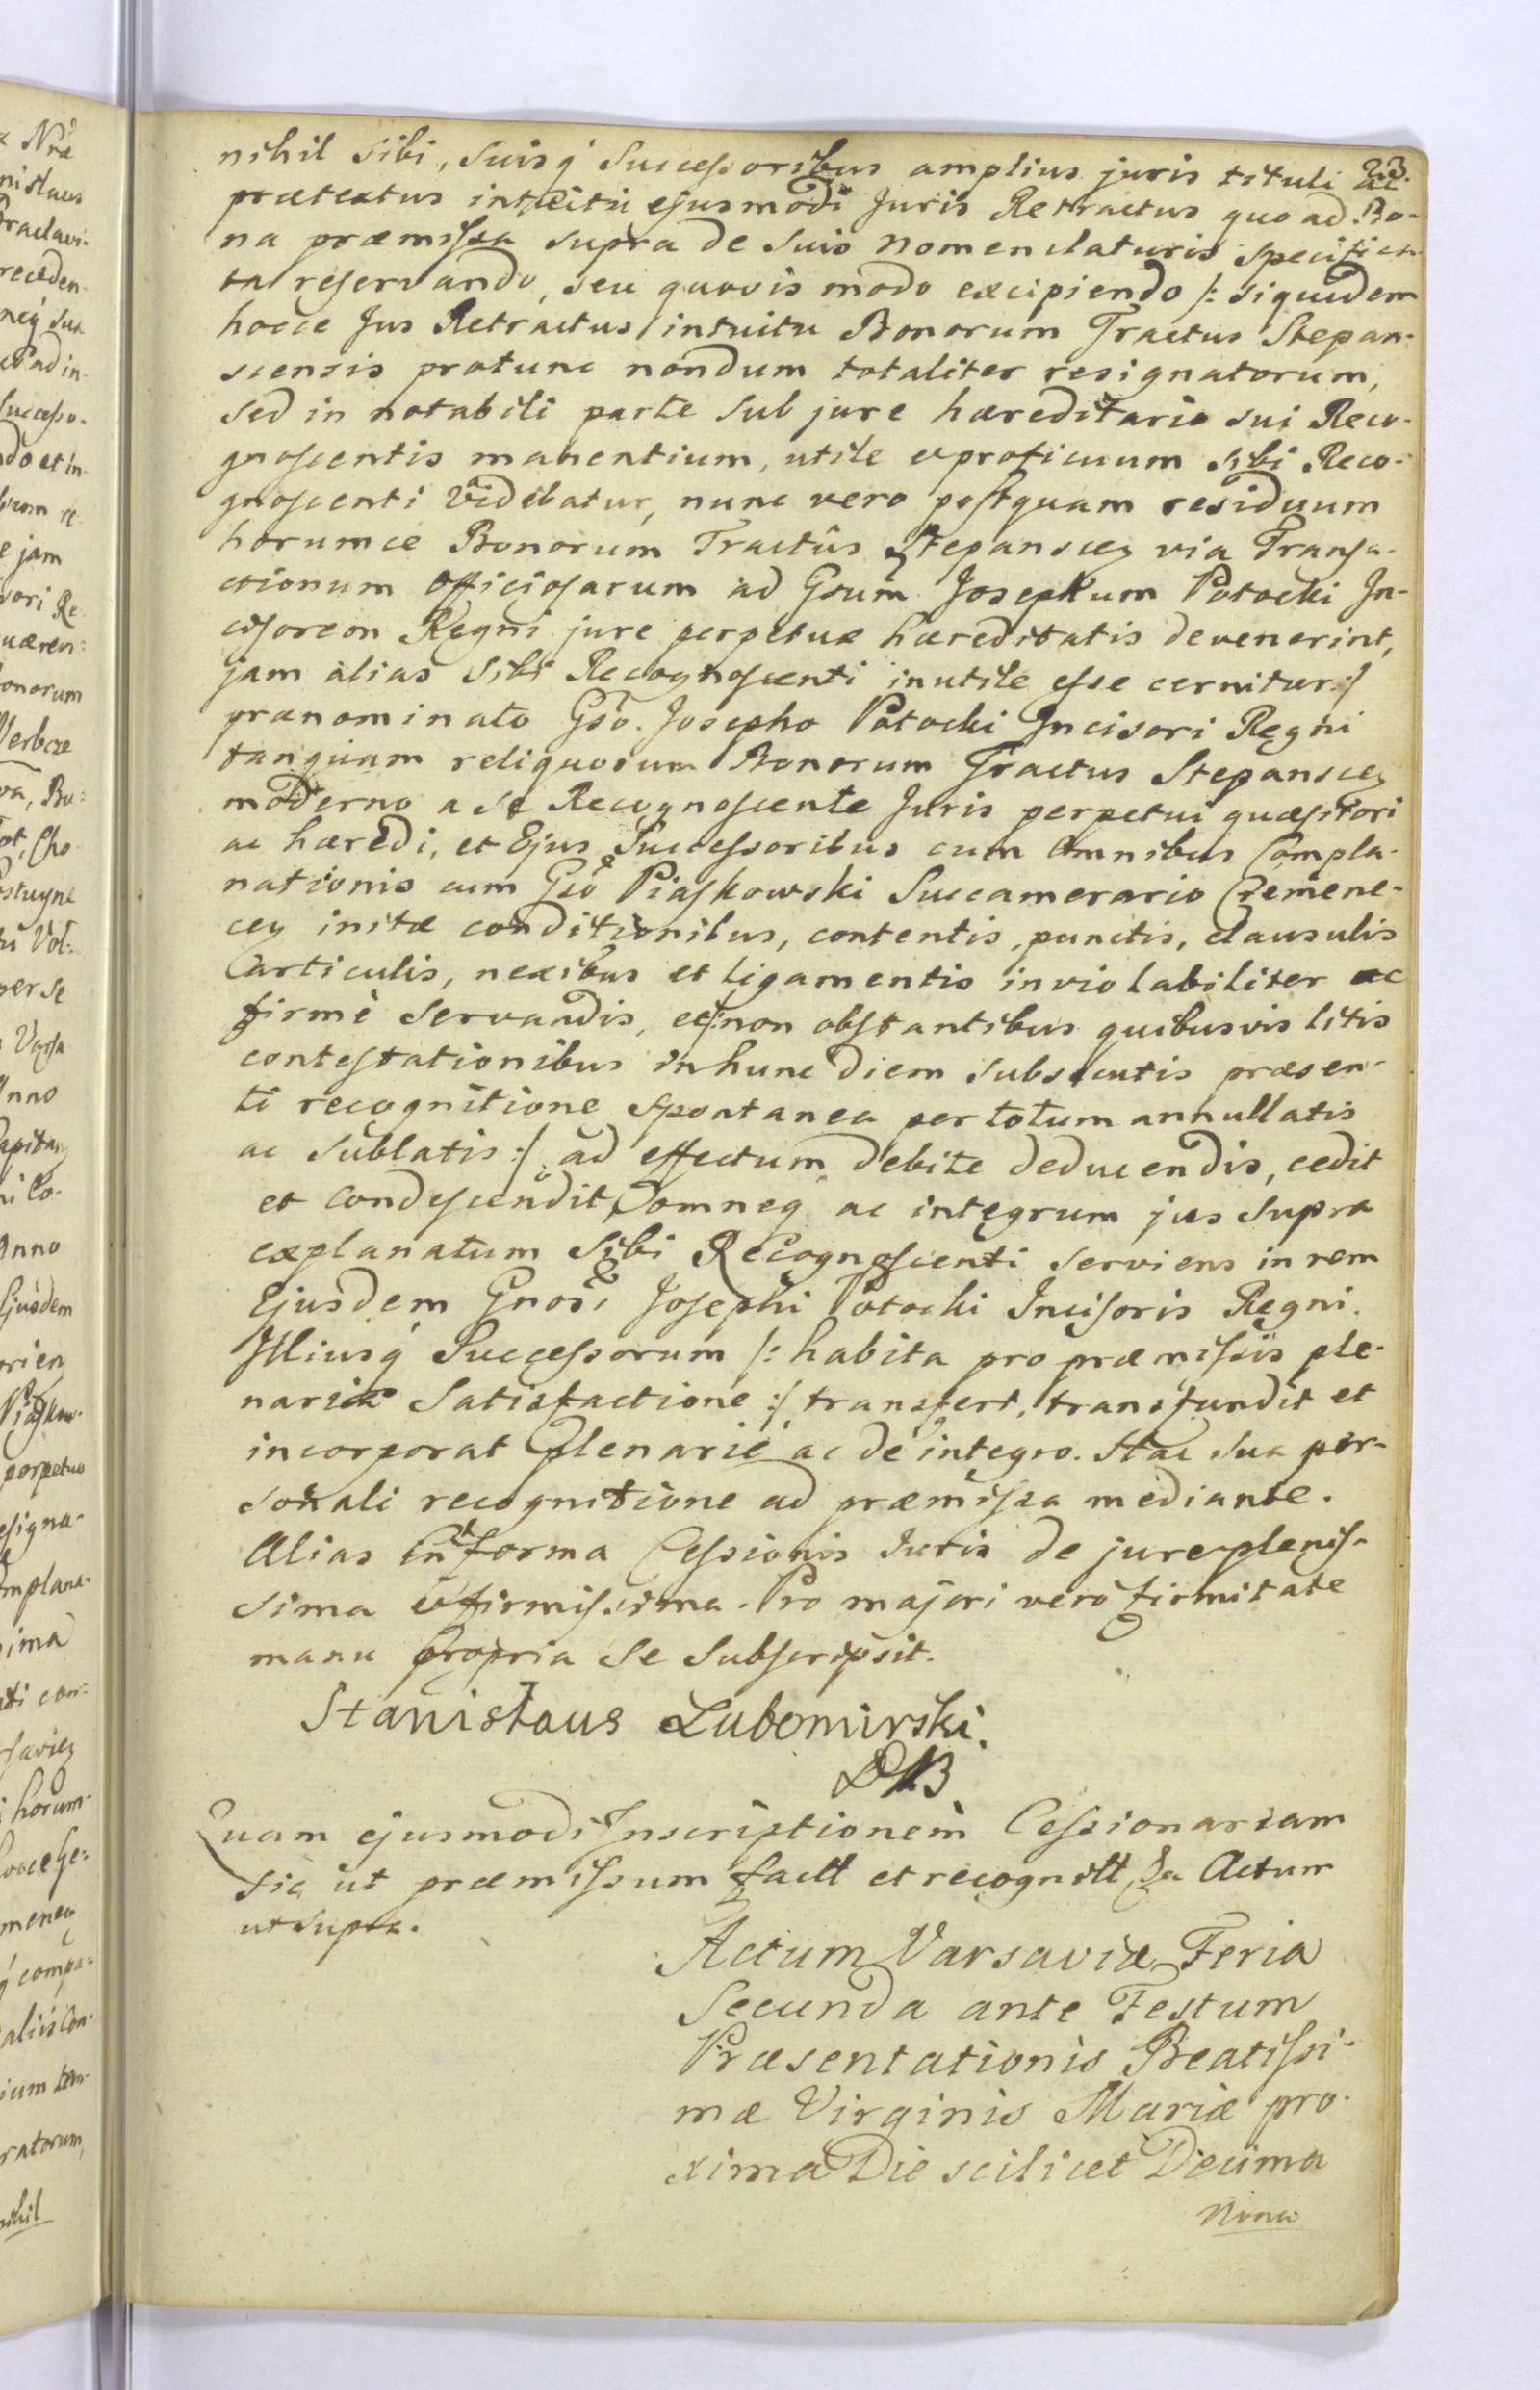 23.
nihil sibi, suisq́ Successoribus amplius juris tituli ac
prætextus intuitu ejusmodi Juris Retractus quo ad Bo-
na præmissa supra de suis Nomenclaturis specifica-
ta reservando, seu quovis modo excipiendo /: siquidem
hocce Jus Retractus intuitu Bonorum Tractus Stepan-
scensis protunc nondum totaliter resignatorum,
sed in notabili parte sub jure hæreditario sui Reco-
gnoscentis manentium, utile et proficuum sibi Reco-
gnoscenti videbatur, nunc vero postquam residuum
horumce Bonorum Tractûs Stepanscen via Transa-
ctionum officiosarum ad Gsum Josephum Potocki In-
cisorem Regni jure perpetuæ hæreditatis devenerint,
jam alias sibi Recognoscenti inutile esse cernitur :/
prænominato Gso. Josepho Potocki Incisori Regni
tanquam reliquorum Bonorum Tractus Stepanscen
moderno a se Recognoscente Juris perpetui quæsitori
ac hæredi, et Ejus Successoribus cum omnibus Compla-
nationis cum Gso Piaskowski Succamerario Cremene-
cen initæ conditionibus, contentis, punctis, clausulis
articulis, nexibus et ligamentis inviolabiliter ac
firmè servandis, et /: non obstantibus quibusvis litis
contestationibus in hunc diem subsecutis præsen-
ti recognitione spontanea per totum annullatis
ac sublatis :/ ad effectum debite deducendis, cedit
et condescendit, omneq ac integrum jus supra
explanatum sibi Recognoscenti serviens in rem
Ejusdem Gnosi Josephi Potocki Incisoris Regni.
Illiusq́ Successorum /: habita pro præmissis ple-
naria Satisfactione :/ transfert, transfundit et
incorporat plenarie ac de integro. Hac sua per-
sonali recognitione ad præmissa mediante.
Alias in forma Cessionis Juris de jure plenis-
sima et firmissima. Pro majori vero firmitate
manu propria se subscripsit.
Stanisłaus Lubomirski.
Quam ejusmodi Inscriptionem Cessionariam
sic ut præmissum factt et recognitt, Actum
ut supra.
Actum Varsaviæ Feria
Secunda ante Festum
Præsentationis Beatissi-
mæ Virginis Mariæ pro-
xima Die scilicet Decima
Nona